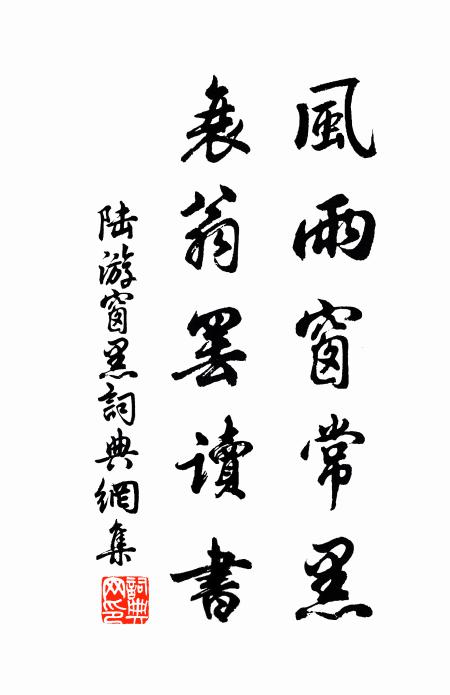 風雨窗常黑
衰翁罢讀書
陆游窗黑詞典網集
詞典网印